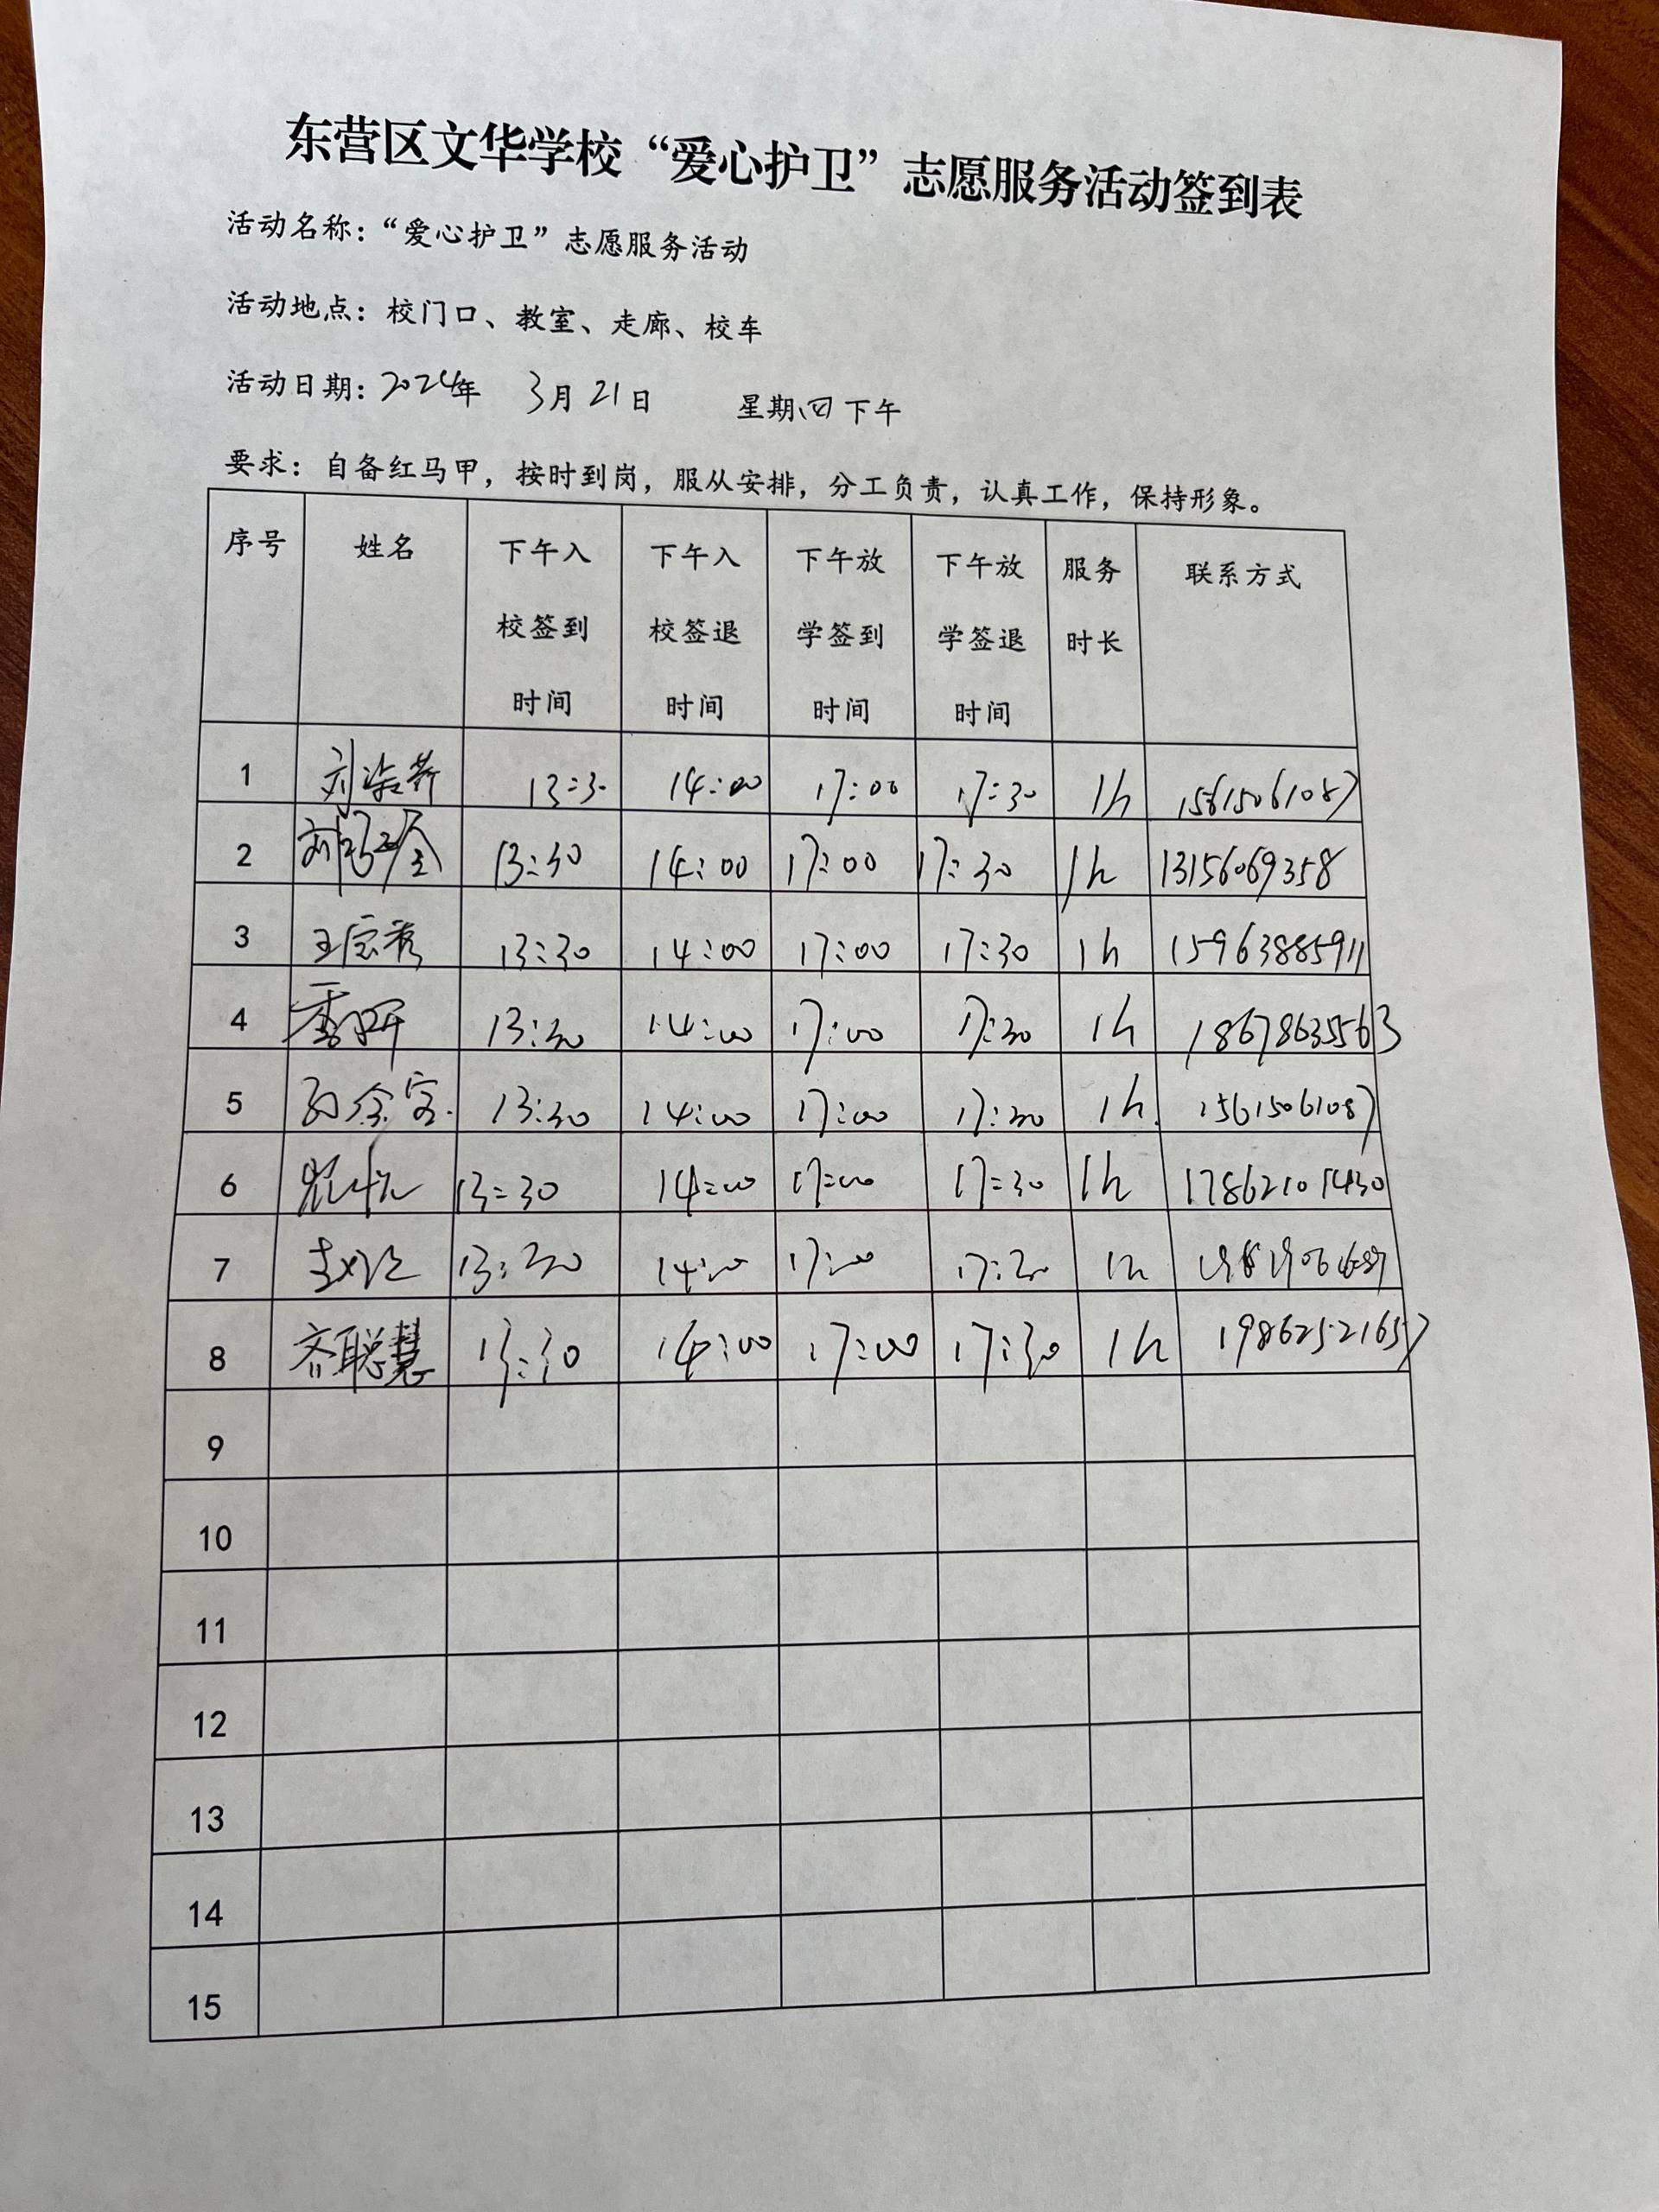 东营区文华学校“爱心护卫”志愿服务活动签到表
活动名称：“爱心护卫”志愿服务活动
活动地点：校门口、教室、走廊、校车
活动日期：2024年 3月21日 星期四下午
要求：自备红马甲，按时到岗，服从安排，分工负责，认真工作，保持形象。
序号 姓名 下午入校签到时间 下午入校签退时间 下午放学签到时间 下午放学签退时间 服务时长 联系方式
1 13:30 14:00 17:00 17:30 1h 15615061087
2 13:30 14:00 17:00 17:30 1h 13156069358
3 13:30 14:00 17:00 17:30 1h 15963885911
4 13:30 14:00 17:00 17:30 1h 18678635563
5 13:30 14:00 17:00 17:30 1h 15615061087
6 13:30 14:00 17:00 17:30 1h 17862101430
7 13:30 14:00 17:00 17:30 1h
8 齐聪慧 13:30 14:00 17:00 17:30 1h 19862521657
9
10
11
12
13
14
15